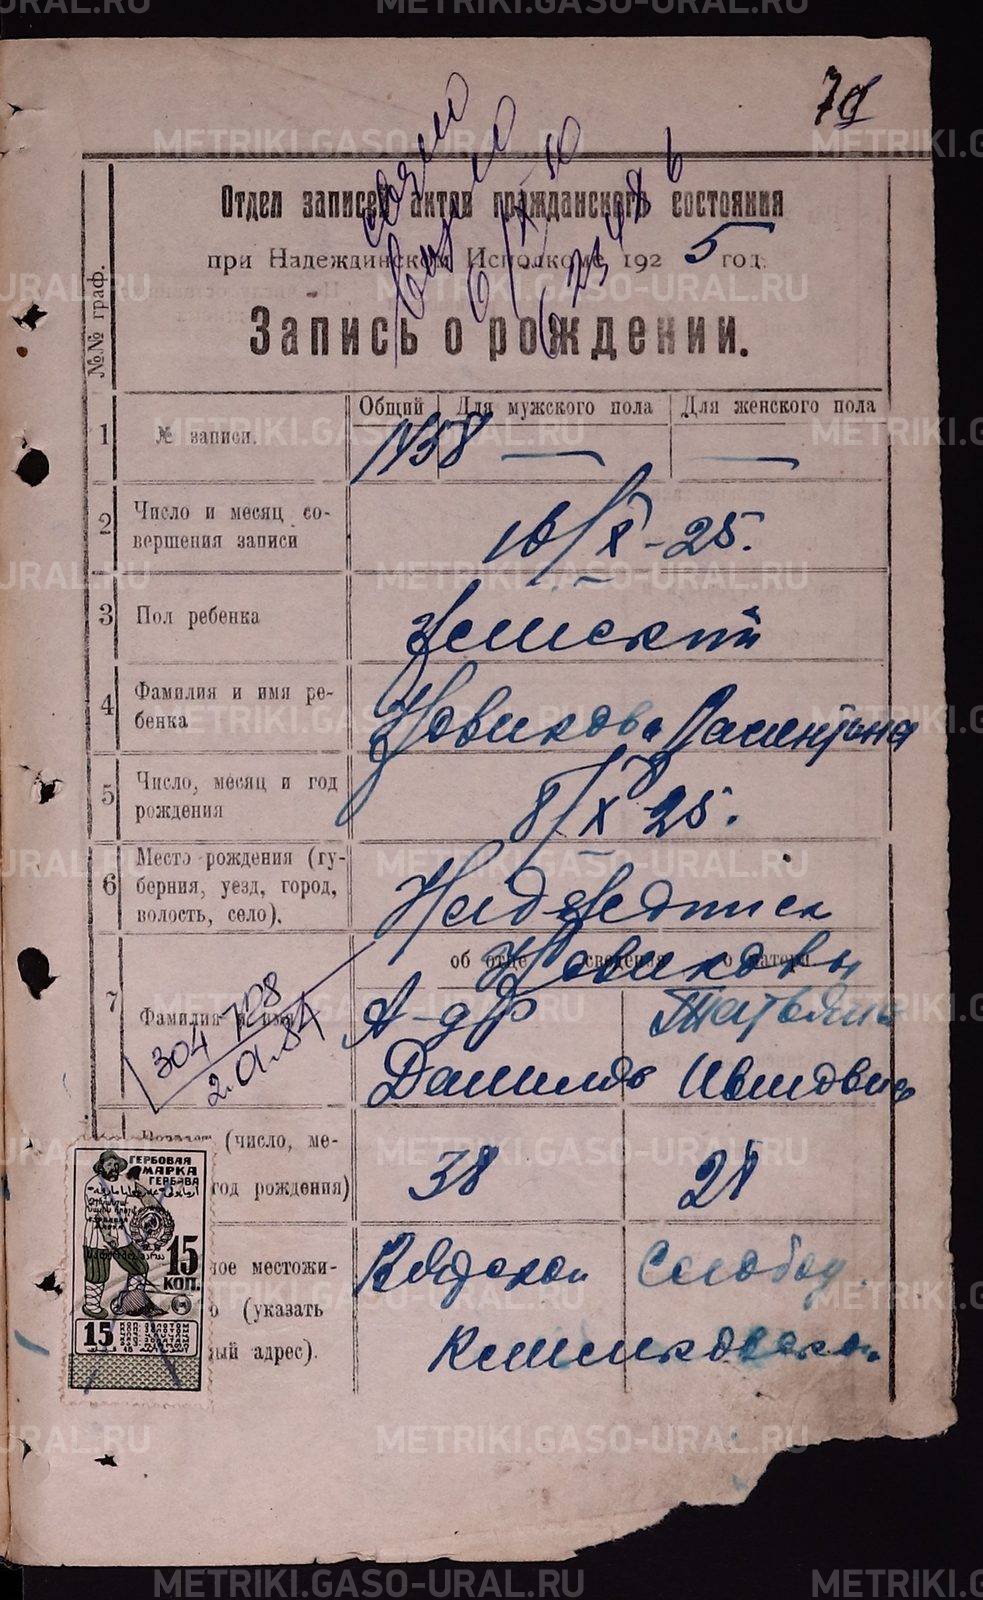 70
Отдел записей актов гражданского состояния
при Надеждинском Исполкоме 1925 год.
Запись о рождении.
№№ граф.
Общий Для мужского пола Для женского пола
1 № записи. №58 — —
2 Число и месяц со-
вершения записи
10/X-25.
3 Пол ребенка Женский
4 Фамилия и имя ре-
бенка
Новикова Валентина
5 Число, месяц и год
рождения
8/X 25.
6 Место рождения (гу-
берния, уезд, город,
волость, село).
Надеждинск
об отце сведения о матери
Новиковы
7 Фамилия и имя
А-др Татьяна
Данилов Ивановна
304 728
2.01.54
Возраст (число, ме-
год рождения)
38 28
ное местожи-
о (указать
ный адрес).
Слобод.
ГЕРБОВАЯ
МАРКА
ГЕРБОВА
15
КОП.
15
METRIKI.GASO-URAL.RU